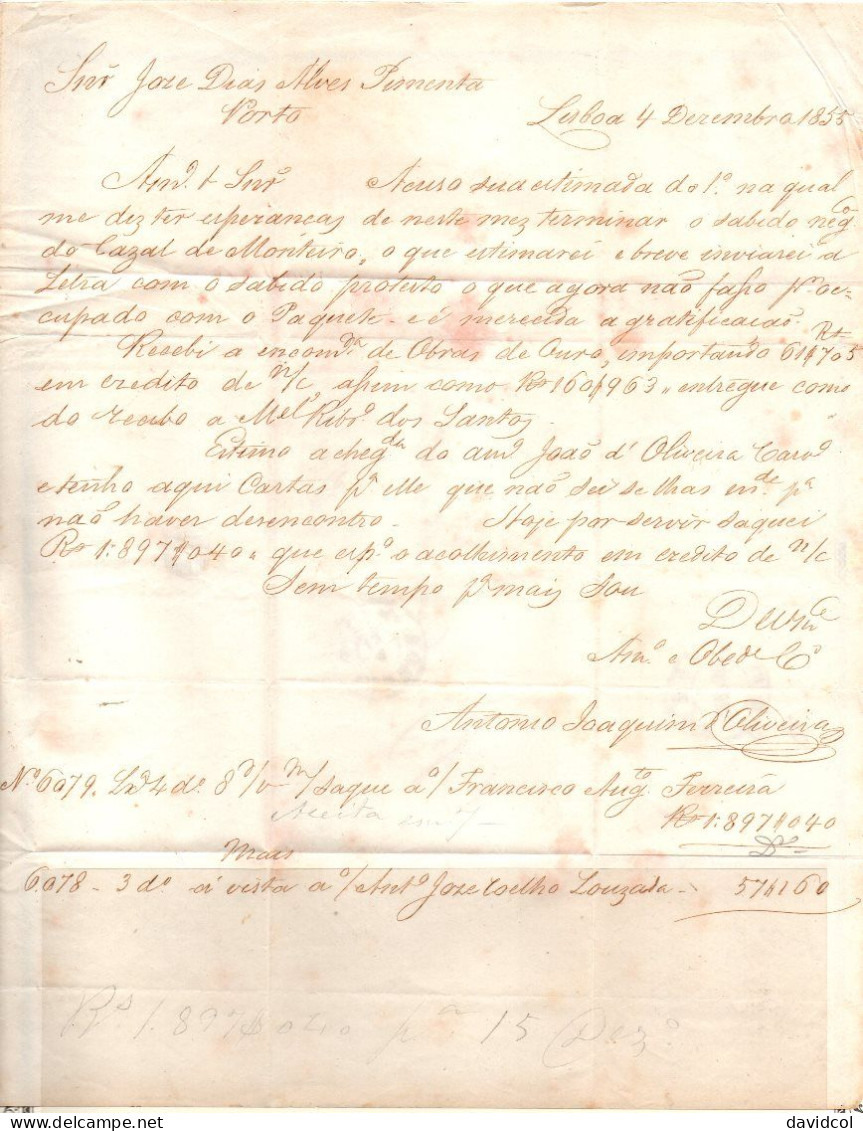 Snr Joze Dias Alves Pimenta
Porto
Lisboa 4 Dezembro 1855
Amo. e Snr. Acuso sua estimada do 1.º na qual
me diz ter esperancas de neste mez terminar o sabido nego.
do Cazal de Monteiro, o que estimarei e breve inviarei a
Letra com o sabido protesto o que agora não fasso pr. oc=
cupado com o Paquete - e é merecida a gratificacaõ.
Recebi a encomda. de Obras de Ouro, importando Rs. 61$705
em credito de n/c, assim como Rs 160$963 „ entregue como
do recibo a Mel. Ribro. dos Santos.
Estimo a chegda. do amo. Joaõ d'Oliveira Carvo.
e tenho aqui Cartas pa. elle que naõ sei se lhas mde. pa.
naõ haver desencontro. Hoje por servir saquei
Rs 1:897$040 „ que espo. o acolhimento em credito de n/c
Sem tempo pa. mais sou
De Vsme.
Amo. e Obedte. Co.
Antonio Joaquim d'Oliveira
No. 6079. Lxa. 4 do. 8 d/v m/saque a o/ Francisco Augto. Ferreira
Rs 1:897$040
Aceita em
Mais
6.078 - 3 do. á vista a o/ Anto. Joze Coelho Louzada - 57$160
Rs 1.897$040 pa. 15 Dezo.
davidcol